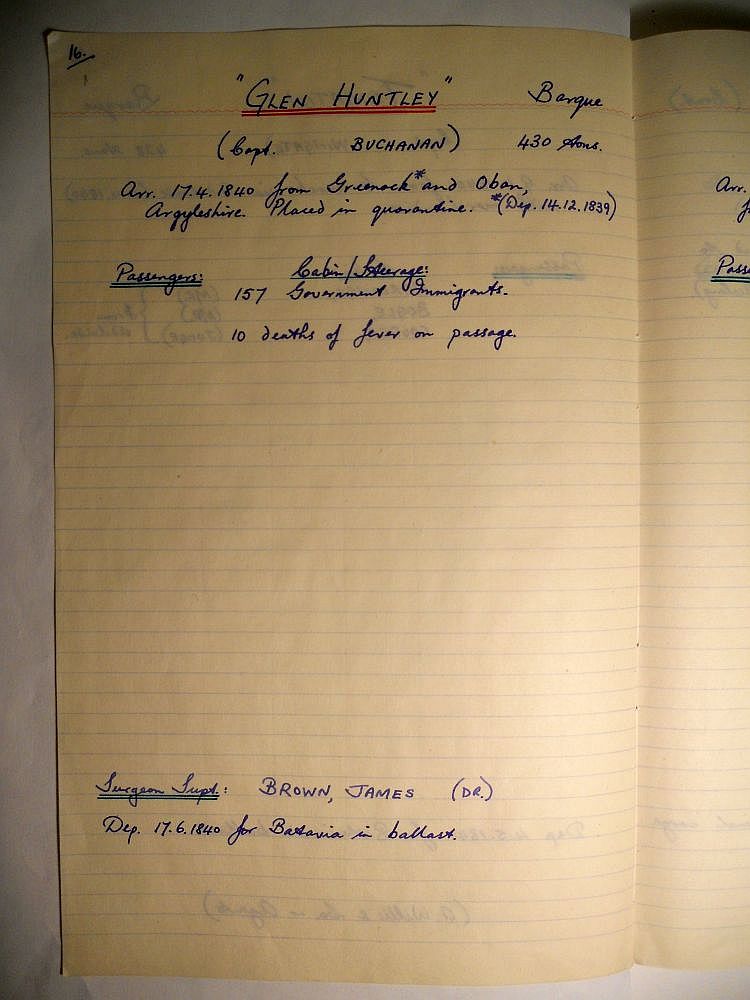 16.
"GLEN HUNTLEY" Barque
(Capt. BUCHANAN) 430 tons.
Arr. 17.4.1840 from Greenock* and Oban,
Argyleshire. Placed in quarantine. *(Dep. 14.12.1839)
Passengers: Cabin/Steerage:
157 Government Immigrants.
10 deaths of fever on passage.
Surgeon Supt.: BROWN, JAMES (DR.)
Dep. 17.6.1840 for Batavia in ballast.
Arr.
Pass